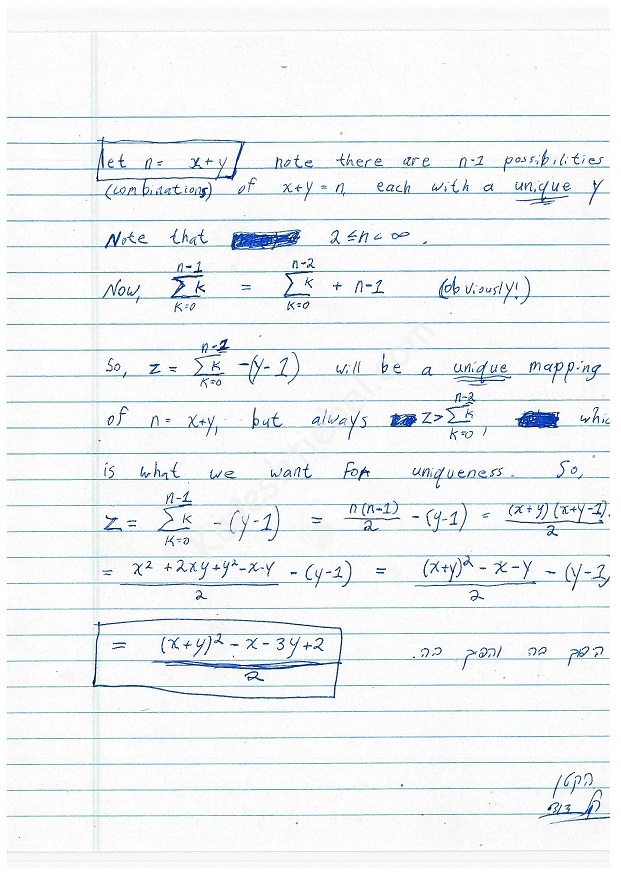 let n = x+y note there are n-1 possibilities
(combinations) of x+y = n, each with a unique y
Note that 2 ≤ n < ∞.
Now, \sum_{K=0}^{n-1} K = \sum_{K=0}^{n-2} K + n-1 (obviously!)
So, z = \sum_{K=0}^{n-1} K -(y-1) will be a unique mapping
of n = x+y, but always z > \sum_{K=0}^{n-2} K, whic
is what we want for uniqueness. So,
z = \sum_{K=0}^{n-1} K - (y-1) = \frac{n(n-1)}{2} - (y-1) = \frac{(x+y)(x+y-1)}{2}
= \frac{x^2 + 2xy + y^2 - x - y}{2} - (y-1) = \frac{(x+y)^2 - x - y}{2} - (y-1)
= \frac{(x+y)^2 - x - 3y + 2}{2} הפך בה והפיך בה.
הקטן
דוד